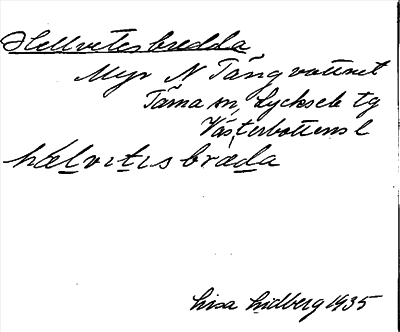 Hellvetesbredda
Myr N Tängvattnet
Tärna sn, Lycksele tg
Västerbottens l
hælvitisbræda
Lisa Lidberg 1935